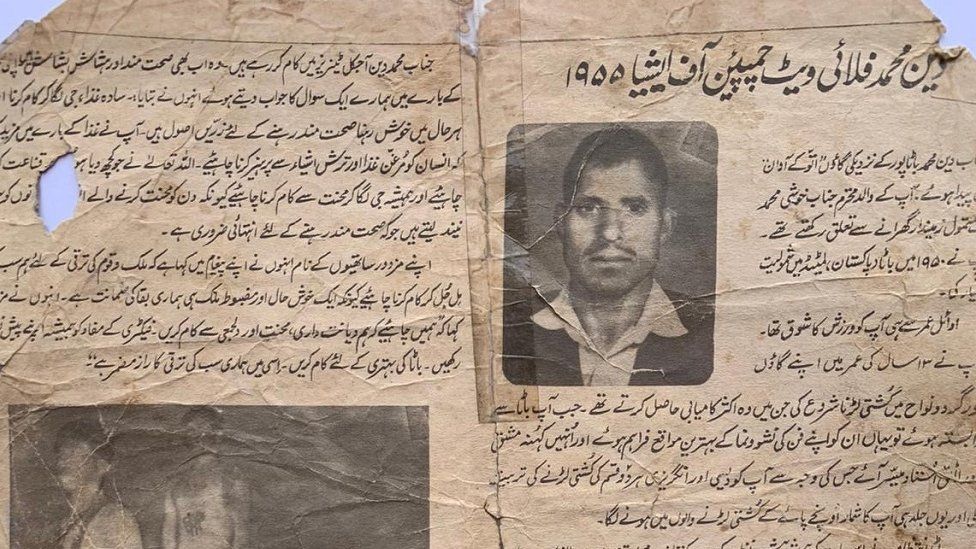 دین محمد فلائی ویٹ چمپئن آف ایشیا ۱۹۵۵
دین محمد باٹاپور کے نزدیکی گاؤں اتوکے آوان
پیدا ہوئے۔ آپ کے والد محترم جناب خوشی محمد
معقول زمیندار گھرانے سے تعلق رکھتے تھے۔
نے ۱۹۵۰ میں باٹا پاکستان لمیٹڈ میں شمولیت
کی۔
اوائل عمر سے ہی آپ کو ورزش کا شوق تھا۔
نے ۱۳ سال کی عمر میں اپنے گاؤں
گرد و نواح میں کشتی لڑنا شروع کی جن میں وہ اکثر کامیابی حاصل کرتے تھے۔ جب آپ باٹا سے
ہوئے تو یہاں ان کو اپنے فن کی نشوونما کے بہترین مواقع فراہم ہوئے اور انہیں کہنہ مشق
استاد میسر آئے جس کی وجہ سے آپ کو دیسی اور انگریزی ہر دو قسم کی کشتی لڑنے کی
اور یوں جلد ہی آپ کا شمار اونچے پائے کے کشتی لڑنے والوں میں ہونے لگا۔
جناب محمد دین آجکل ٹینریز میں کام کر رہے ہیں۔ وہ اب بھی صحت مند اور ہشاش بشاش
کے بارے میں ہمارے ایک سوال کا جواب دیتے ہوئے انہوں نے بتایا۔ سادہ غذا، جی لگا کر کام کرنا
ہر حال میں خوش رہنا صحت مند رہنے کے لئے زریں اصول ہیں۔ آپ نے غذا کے بارے میں مزید
کہ انسان کو مرغن غذا اور ترش اشیاء سے پرہیز کرنا چاہئیے۔ اللہ تعالےٰ نے جو کچھ دیا قناعت
چاہئیے اور ہمیشہ جی لگا کر محنت سے کام کرنا چاہئیے کیونکہ دن کو محنت کرنے والے
نیند لیتے ہیں جو کہ صحت مند رہنے کے لئے انتہائی ضروری ہے۔
اپنے مزدور ساتھیوں کے نام انہوں نے اپنے پیغام میں کہا ہے کہ ملک و قوم کی ترقی کے لئے ہم سب
مل جُل کر کام کرنا چاہئیے کیونکہ ایک خوش حال اور مضبوط ملک ہی ہماری بقا کی ضمانت ہے۔ انہوں نے
کہا کہ "ہمیں چاہئیے کہ ہم دیانت داری، محنت اور دلجعی سے کام کریں۔ فیکٹری کے مفاد کو ہمیشہ اپنے پیش
رکھیں۔ باٹا کی بہتری کے لئے کام کریں۔ اسی میں ہماری سب کی ترقی کا راز مضمر ہے"۔